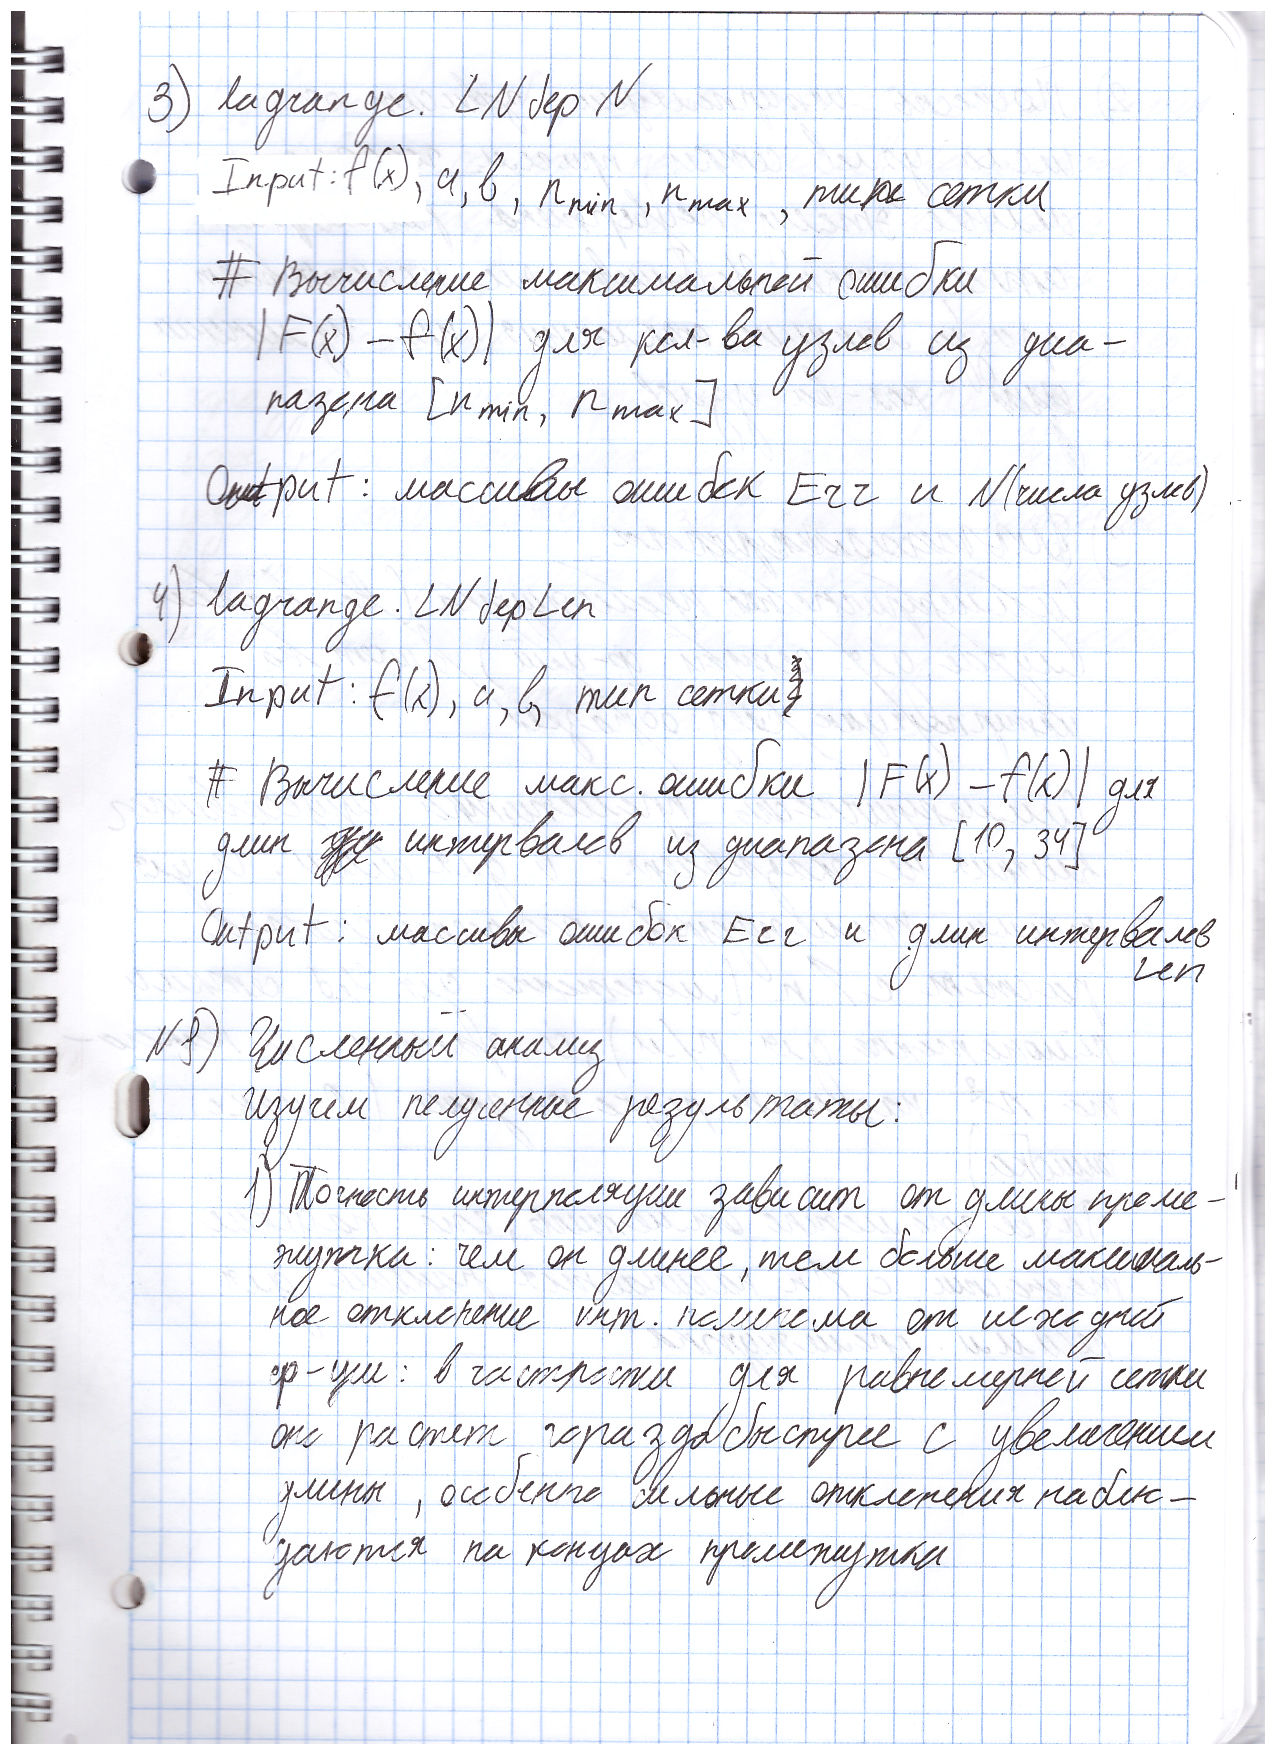 3) lagrange. LN dep N
Input: f(x), a, b, n min, n max, тип сетки
# Вычисление максимальной ошибки
|F(x) - f(x)| для кол-ва узлов из диа-
пазона [n min, n max]
Output: массивы ошибок Err и N (числа узлов)
4) lagrange. LN dep Len
Input: f(x), a, b, тип сетки
# Вычисление макс. ошибки |F(x) - f(x)| для
длин интервалов из диапазона [10, 34]
Output: массивы ошибок Err и длин интервалов
Len
Численный анализ
Изучем полученные результаты:
1) Точность интерполяции зависит от длины проме-
жутка: чем он длинее, тем больше максималь-
ное отклонение инт. полинома от исходной
ф-ции: в частности для равномерной сетки
оно растет гораздо быстрее с увеличением
длины, особенно сильные отклонения наблю-
даются на концах промежутка